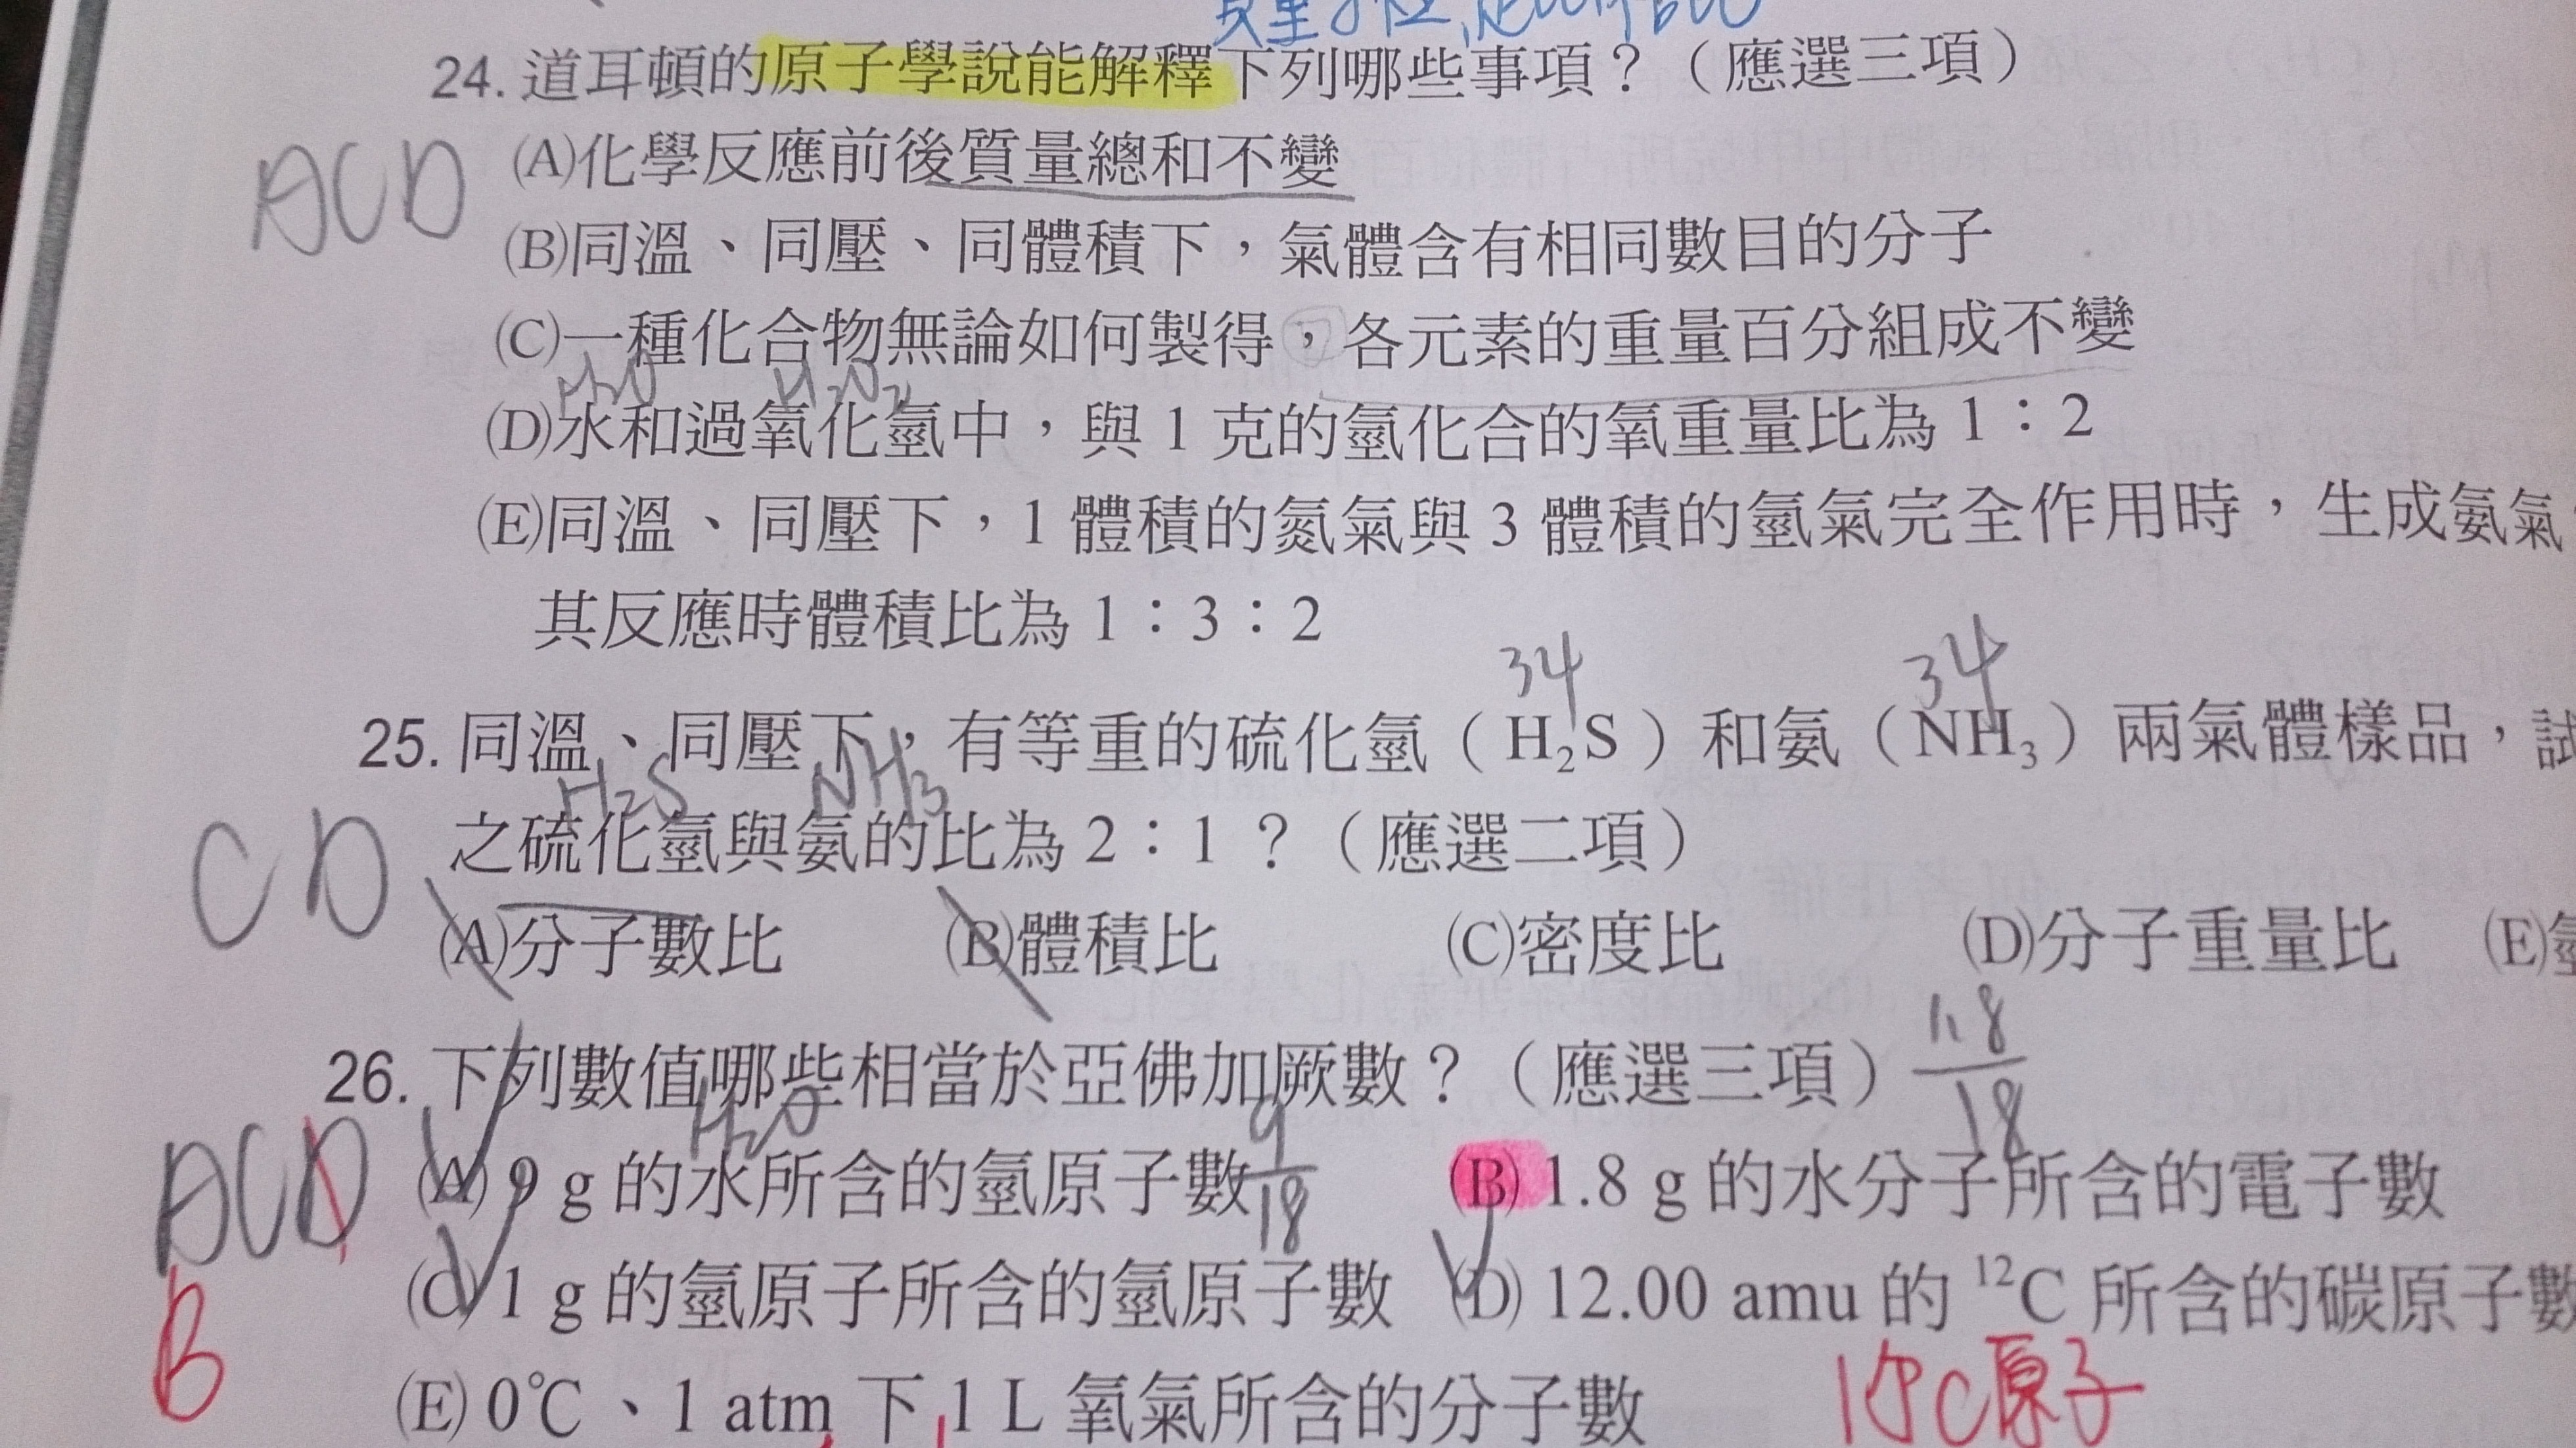 24. 道耳頓的原子學說能解釋下列哪些事項？（應選三項）
ACD
(A)化學反應前後質量總和不變
(B)同溫、同壓、同體積下，氣體含有相同數目的分子
(C)一種化合物無論如何製得，各元素的重量百分組成不變
H₂O H₂O₂
(D)水和過氧化氫中，與 1 克的氫化合的氧重量比為 1：2
(E)同溫、同壓下，1 體積的氮氣與 3 體積的氫氣完全作用時，生成氨氣
其反應時體積比為 1：3：2
34 34
25. 同溫、同壓下，有等重的硫化氫（H₂S）和氨（NH₃）兩氣體樣品，試
H₂S NH₃
之硫化氫與氨的比為 2：1？（應選二項）
CD
(A)分子數比 (B)體積比 (C)密度比 (D)分子重量比 (E)氫
26. 下列數值哪些相當於亞佛加厥數？（應選三項） 1.8/18
H₂O
ACD
(A) 9 g 的水所含的氫原子數 9/18 (B) 1.8 g 的水分子所含的電子數
B
(C) 1 g 的氫原子所含的氫原子數 (D) 12.00 amu 的 ¹²C 所含的碳原子數
(E) 0℃、1 atm 下 1 L 氧氣所含的分子數
1個C原子